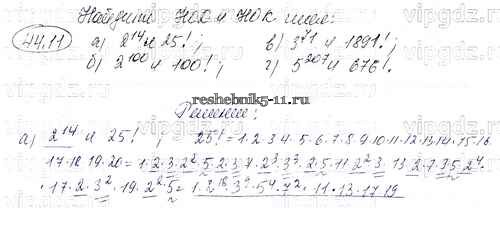 Найдите НОД и НОК чисел:
44.11 а) 2^14 и 25!; в) 3^21 и 1891!;
б) 2^100 и 100!; г) 5^207 и 676!.
reshebnik5-11.ru
Решение:
а) 2^14 и 25! ; 25! = 1·2·3·4·5·6·7·8·9·10·11·12·13·14·15·16
17·18·19·20 = 1·2·3·2^2·5·2·3·7·2^3·3^2·2·5·11·2^2·3·13·2·7·3·5·2^4·
·17·2·3^2·19·2^2·5 = 1·2^18·3^8·5^4·7^2·11·13·17·19